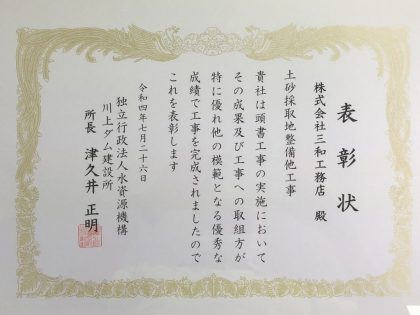 表彰状
株式会社三和工務店 殿
土砂採取地整備他工事
貴社は頭書工事の実施において
その成果及び工事への取組方が
特に優れ他の模範となる優秀な
成績で工事を完成されましたので
これを表彰します
令和四年七月二十六日
独立行政法人水資源機構
川上ダム建設所
所長 津久井 正明